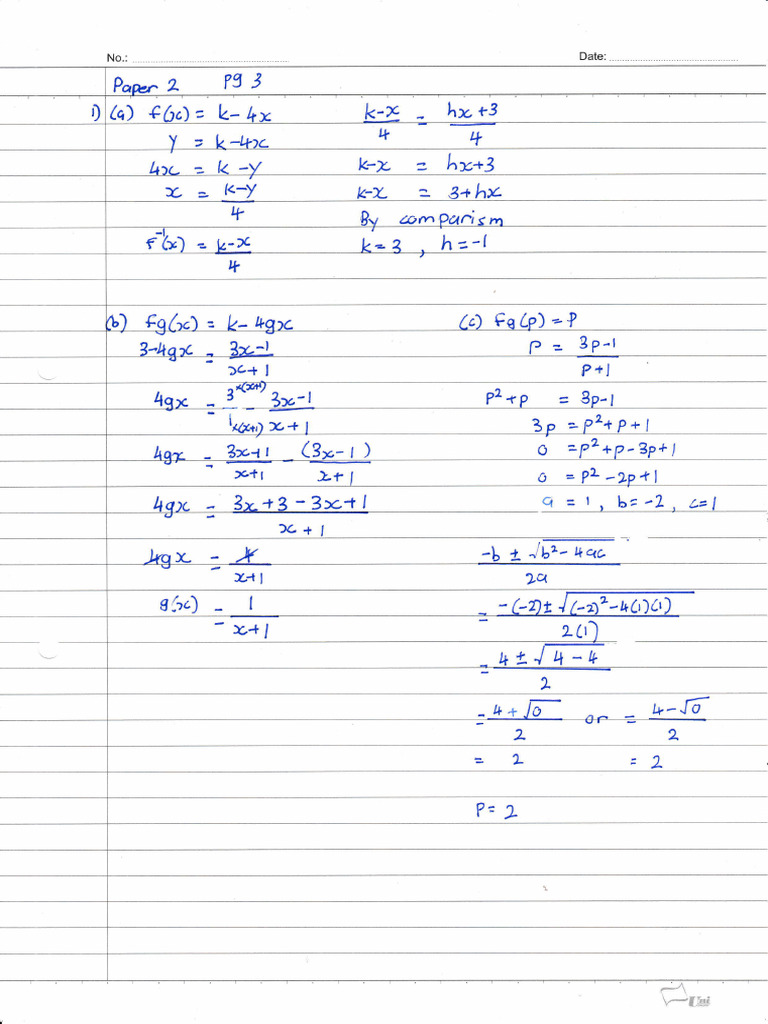 No.: Date:
Paper 2 pg 3
1) (a) f(x) = k - 4x
y = k - 4x
4x = k - y
x = (k-y)/4
f⁻¹(x) = (k-x)/4
(k-x)/4 = (hx+3)/4
k-x = hx+3
k-x = 3+hx
By comparism
k=3 , h=-1
(b) fg(x) = k - 4gx
3-4gx = (3x-1)/(x+1)
4gx = 3×(x+1)/1×(x+1) - (3x-1)/(x+1)
4gx = (3x+1)/(x+1) - (3x-1)/(x+1)
4gx = (3x+3-3x+1)/(x+1)
4gx = 4/(x+1)
g(x) = 1/(x+1)
(c) fg(p) = p
p = (3p-1)/(p+1)
p²+p = 3p-1
3p = p²+p+1
0 = p²+p-3p+1
0 = p²-2p+1
a = 1, b=-2, c=1
(-b ± √(b²-4ac))/2a
= (-(-2) ± √((-2)²-4(1)(1)))/2(1)
= (4 ± √(4-4))/2
= (4+√0)/2 or = (4-√0)/2
= 2 = 2
P = 2
Uni